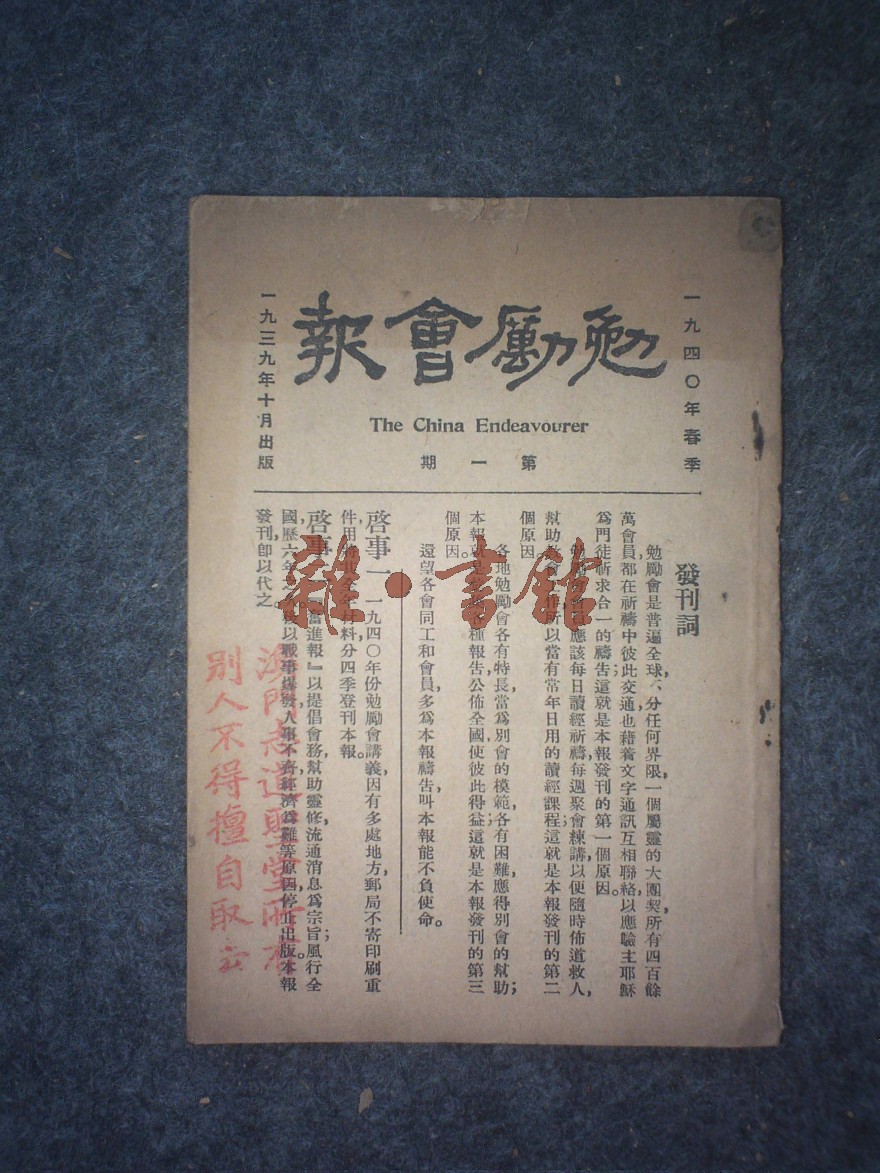 一九四〇年春季
勉勵會報
The China Endeavourer
第一期
一九三九年十月出版
發刊詞
勉勵會是普遍全球、分任何界限，一個屬靈的大團契，所有四百餘
萬會員，都在祈禱中彼此交通，也藉着文字通訊互相聯絡，以應驗主耶穌
爲門徒祈求合一的禱告；這就是本報發刊的第一個原因。
應該每日讀經祈禱，每週聚會練講，以便隨時佈道救人，
幫助 所以當有常年日用的讀經課程；這就是本報發刊的第二
個原因。
各地勉勵會各有特長，當爲別會的模範，各有困難，應得別會的幫助；
本報就 種報告，公佈全國，使彼此得益，這就是本報發刊的第三
個原因。
還望各會同工和會員，多爲本報禱告，叫本報能不負使命。
啓事一 一九四〇年份勉勵會講義，因有多處地方，郵局不寄印刷重
件，用 料，分四季登刊本報。
啓事 奮進報』以提倡會務，幫助靈修，流通消息爲宗旨；風行全
國，歷六年 以戰事爆發，人事不齊，經濟爲難等原因，停止出版。本報
發刊，卽以代之。
澳門志道聖堂所存
別人不得擅自取去
雜·書館